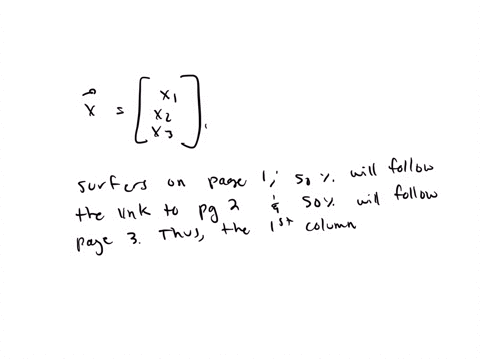 x⃗ = [x1
x2
x3].
surfers on page 1, 50% will follow
the link to pg 2 & 50% will follow
page 3. Thus, the 1st column